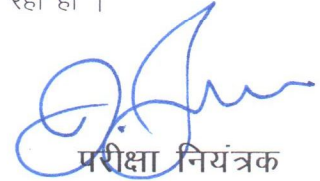 रहा हो ।
परीक्षा नियंत्रक